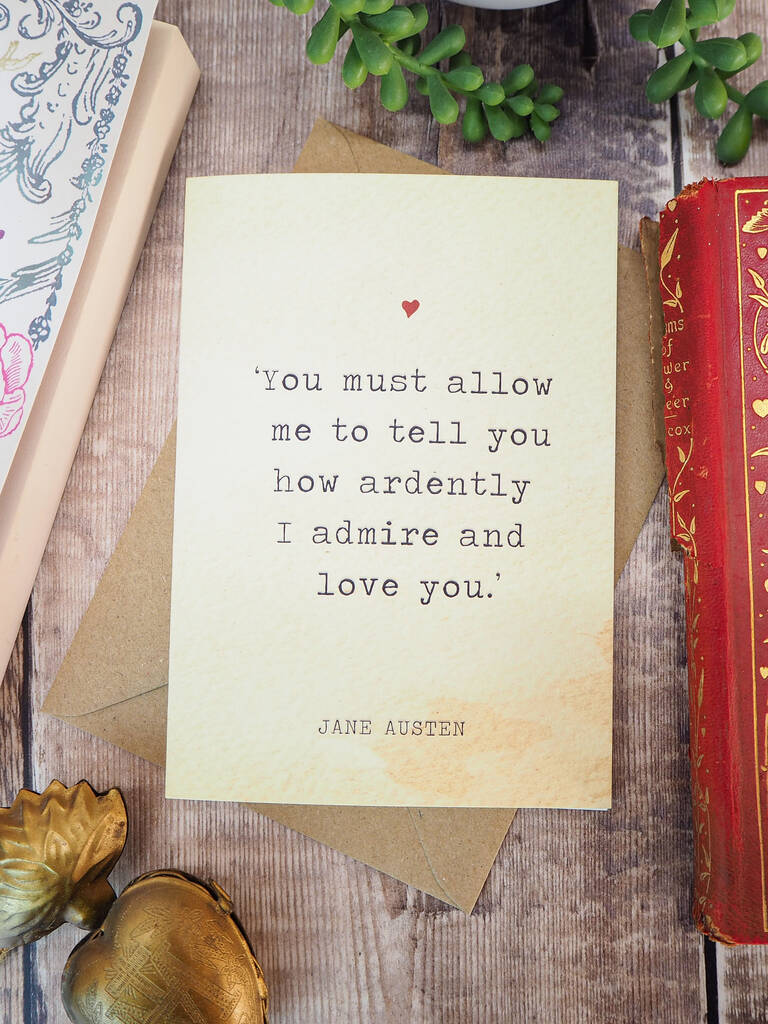 ‘You must allow
me to tell you
how ardently
I admire and
love you.’
JANE AUSTEN
of
&